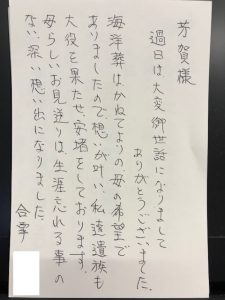 芳賀様
過日は、大変御世話になりまして
ありがとうございました。
海洋葬はかねてよりの母の希望で
ありましたので、想いが叶い、私達遺族も
大役を果たせ安堵をしております。
母らしいお見送りは、生涯忘れる事の
ない、深い想い出になりました。
合掌